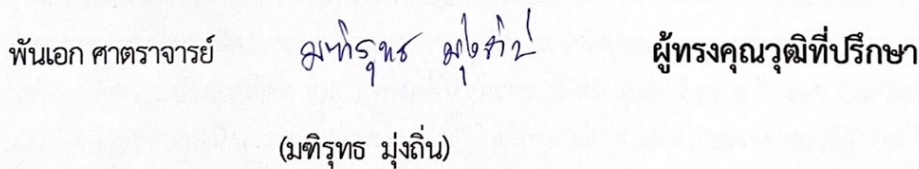 พันเอก ศาตราจารย์ มฑิรุทธ มุ่งถิ่น ผู้ทรงคุณวุฒิที่ปรึกษา
(มฑิรุทธ มุ่งถิ่น)